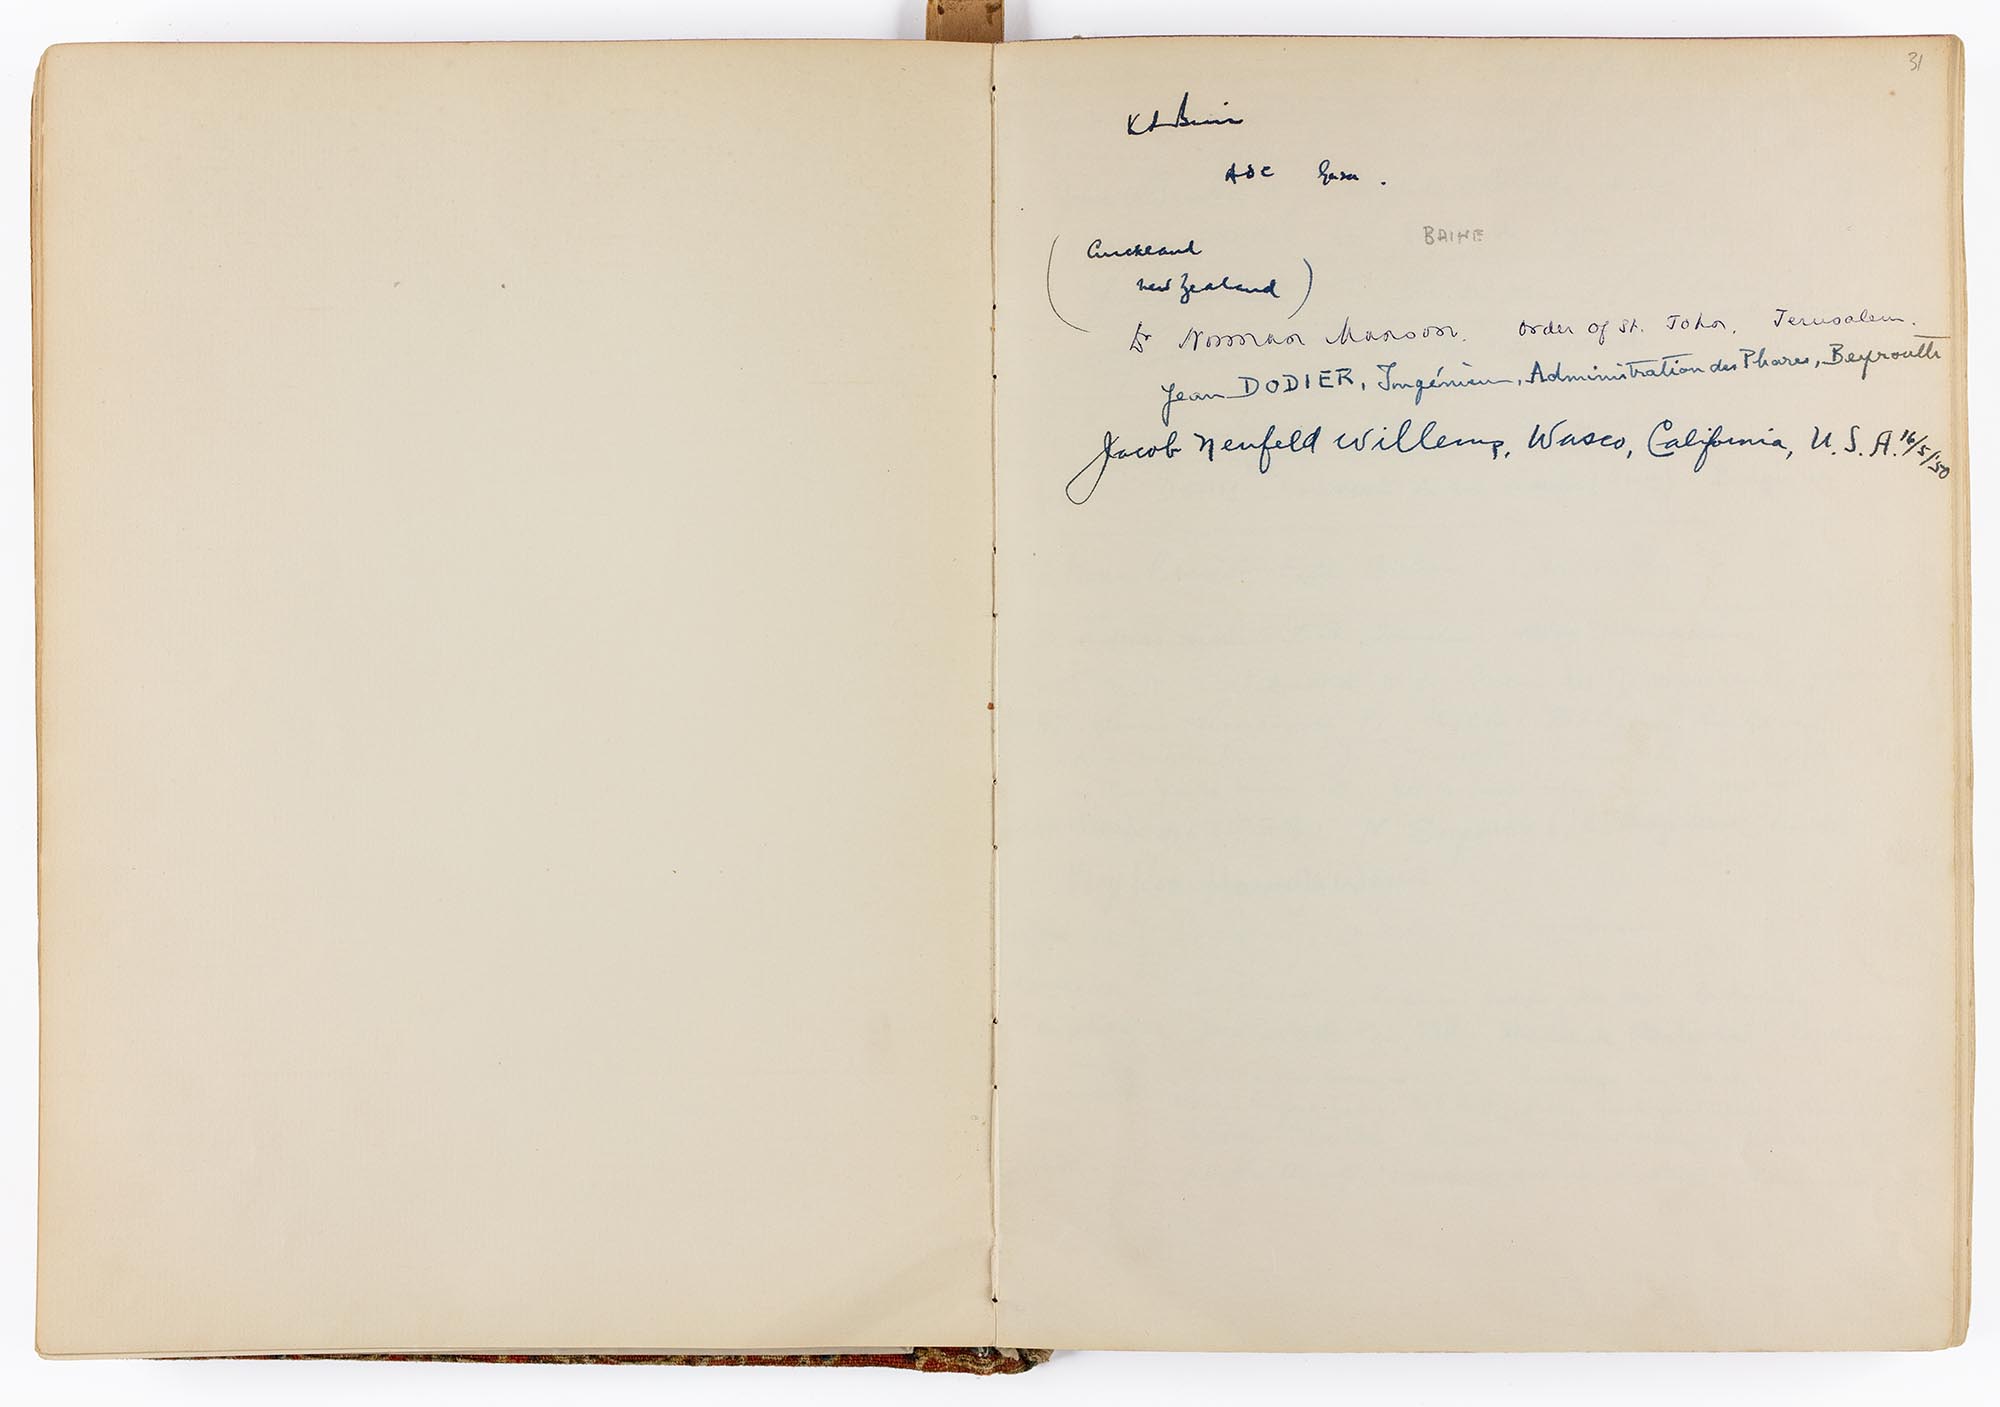 31
ADC Gaza.
BAINE
(Auckland
New Zealand)
Dr Norman Manson. Order of St. John, Jerusalem.
Jean DODIER, Ingénieur, Administration des Phares, Beyrouth
Jacob Neufeld Willems, Wasco, California, U.S.A. 16/5/'50